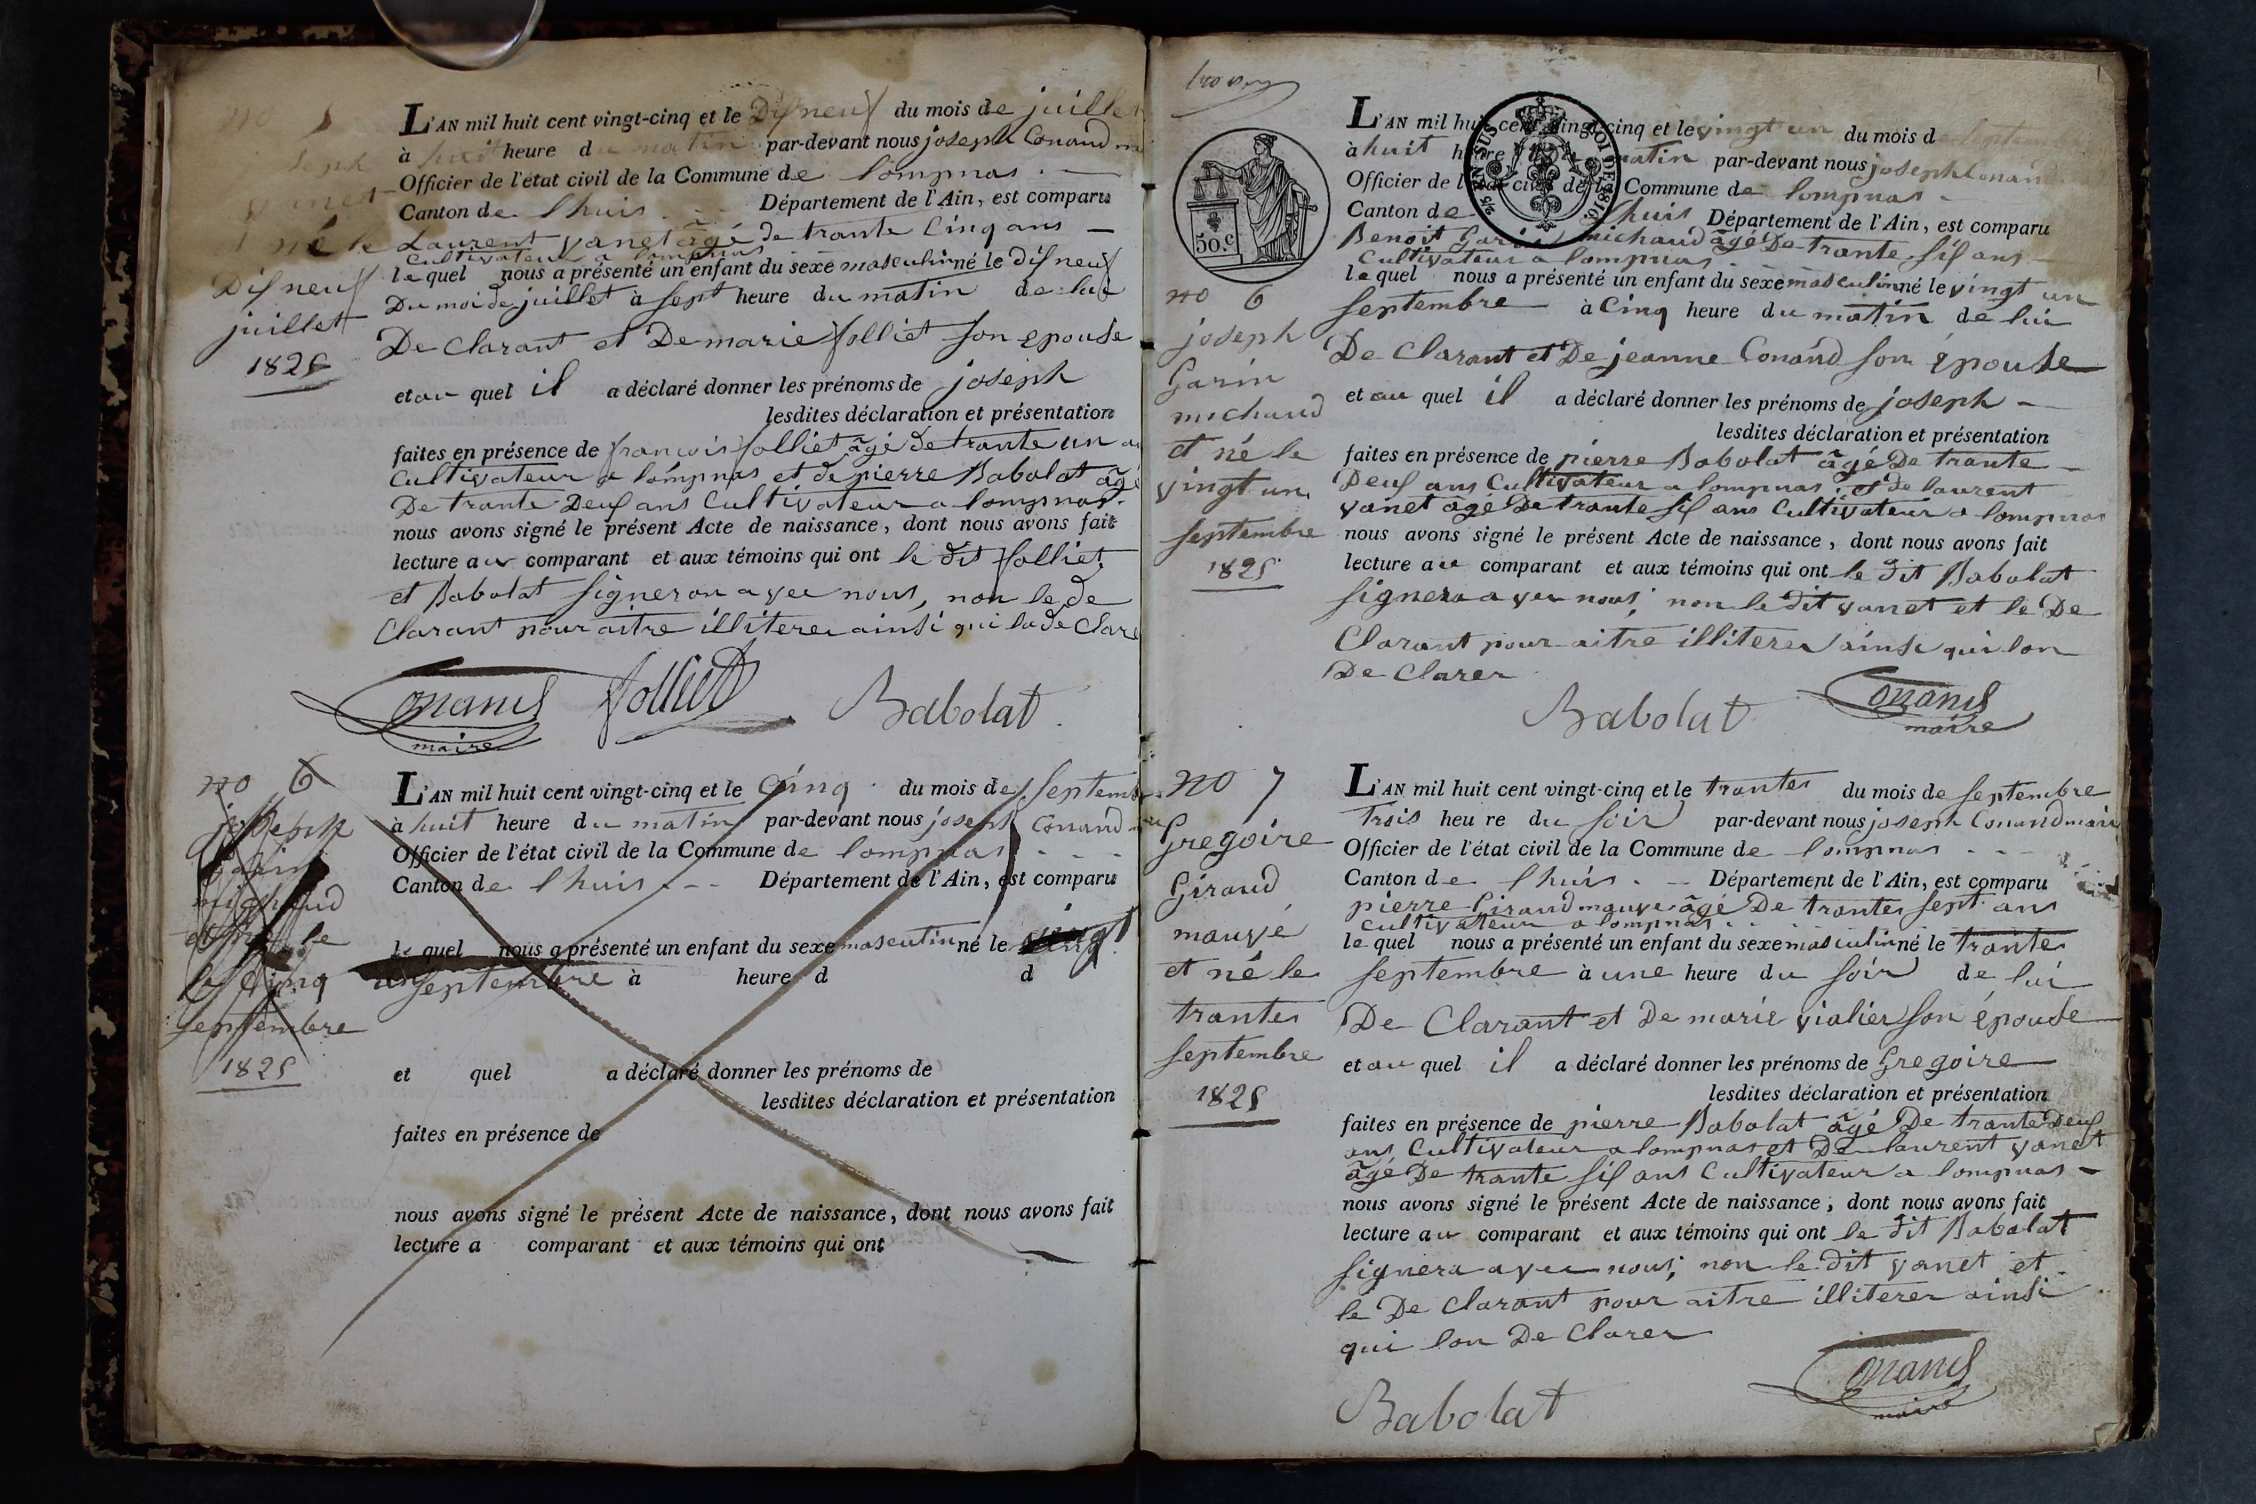 no 5
joseph
vanet
et né le
Disneuf
juillet
1825
L'AN mil huit cent vingt-cinq et le Disneuf du mois de juillet
à huit heure du matin par-devant nous joseph Conand
Officier de l'état civil de la Commune de lompnas
Canton de lhuis Département de l'Ain, est comparu
Laurent vanet âgé de trante Cinq ans
Cultivateur a lompnas
le quel nous a présenté un enfant du sexe masculin né le disneuf
Du moi de juillet à sept heure du matin de lui
De clarant et De marie folliet son epouse
et au quel il a déclaré donner les prénoms de joseph
lesdites déclaration et présentation
faites en présence de francois folliet âgé De trante un
Cultivateur a lompnas et de pierre Babolat âgé
De trante Deus ans Cultivateur a lompnas
nous avons signé le présent Acte de naissance, dont nous avons fait
lecture au comparant et aux témoins qui ont le dit folliet
et Babolat signeron avec nous, non le de
Clarant pour aitre illiterer ainsi qui la de Clare
Conand folliet Babolat
maire
no 6
joseph
Garin
michaud
et né le
le Cinq
septembre
1825
L'AN mil huit cent vingt-cinq et le Cinq du mois de septembre
à huit heure du matin par-devant nous joseph Conand
Officier de l'état civil de la Commune de lompnas
Canton de lhuis Département de l'Ain, est comparu
le quel nous a présenté un enfant du sexe masculin né le vingt
un septembre à heure d d
et quel a déclaré donner les prénoms de
lesdites déclaration et présentation
faites en présence de
nous avons signé le présent Acte de naissance, dont nous avons fait
lecture a comparant et aux témoins qui ont
50.c
no 6
joseph
Garin
michaud
et né le
vingt un
septembre
1825
L'AN mil huit cent vingt-cinq et le vingt un du mois d
à huit heure du matin par-devant nous joseph Conand
Officier de l'état civil de la Commune de lompnas
Canton de lhuis Département de l'Ain, est comparu
Benoit Garin michaud âgé De trante sis ans
Cultivateur a lompnas
le quel nous a présenté un enfant du sexe masculin né le vingt un
septembre à Cinq heure du matin de lui
De Clarant et De jeanne Conand son épouse
et au quel il a déclaré donner les prénoms de joseph
lesdites déclaration et présentation
faites en présence de pierre Babolat âgé De trante
Deus ans Cultivateur a lompnas et de laurent
vanet âgé De trante sis ans Cultivateur a lompnas
nous avons signé le présent Acte de naissance, dont nous avons fait
lecture au comparant et aux témoins qui ont le dit Babolat
signera avec nous; non le dit vanet et le De
Clarant pour aitre illiterer ainsi qui lon
De Clarer
Babolat Conand
maire
no 7
Gregoire
Giraud
mauvé
et né le
trantes
septembre
1825
L'AN mil huit cent vingt-cinq et le trantes du mois de septembre
trois heure du soir par-devant nous joseph Conand maire
Officier de l'état civil de la Commune de lompnas
Canton de lhuis Département de l'Ain, est comparu
pierre Giraud mauve âgé De trantes sept ans
Cultivateur a lompnas
le quel nous a présenté un enfant du sexe masculin né le trantes
septembre à une heure du soir de lui
De Clarant et De marie vialier son épouse
et au quel il a déclaré donner les prénoms de Gregoire
lesdites déclaration et présentation
faites en présence de pierre Babolat âgé De trante Deus
ans Cultivateur a lompnas et De laurent vanet
âgé De trante sis ans Cultivateur a lompnas
nous avons signé le présent Acte de naissance, dont nous avons fait
lecture au comparant et aux témoins qui ont le dit Babolat
signera avec nous; non le dit vanet et
le De Clarant pour aitre illiterer ainsi
qui lon De Clarer
Babolat Conand
maire